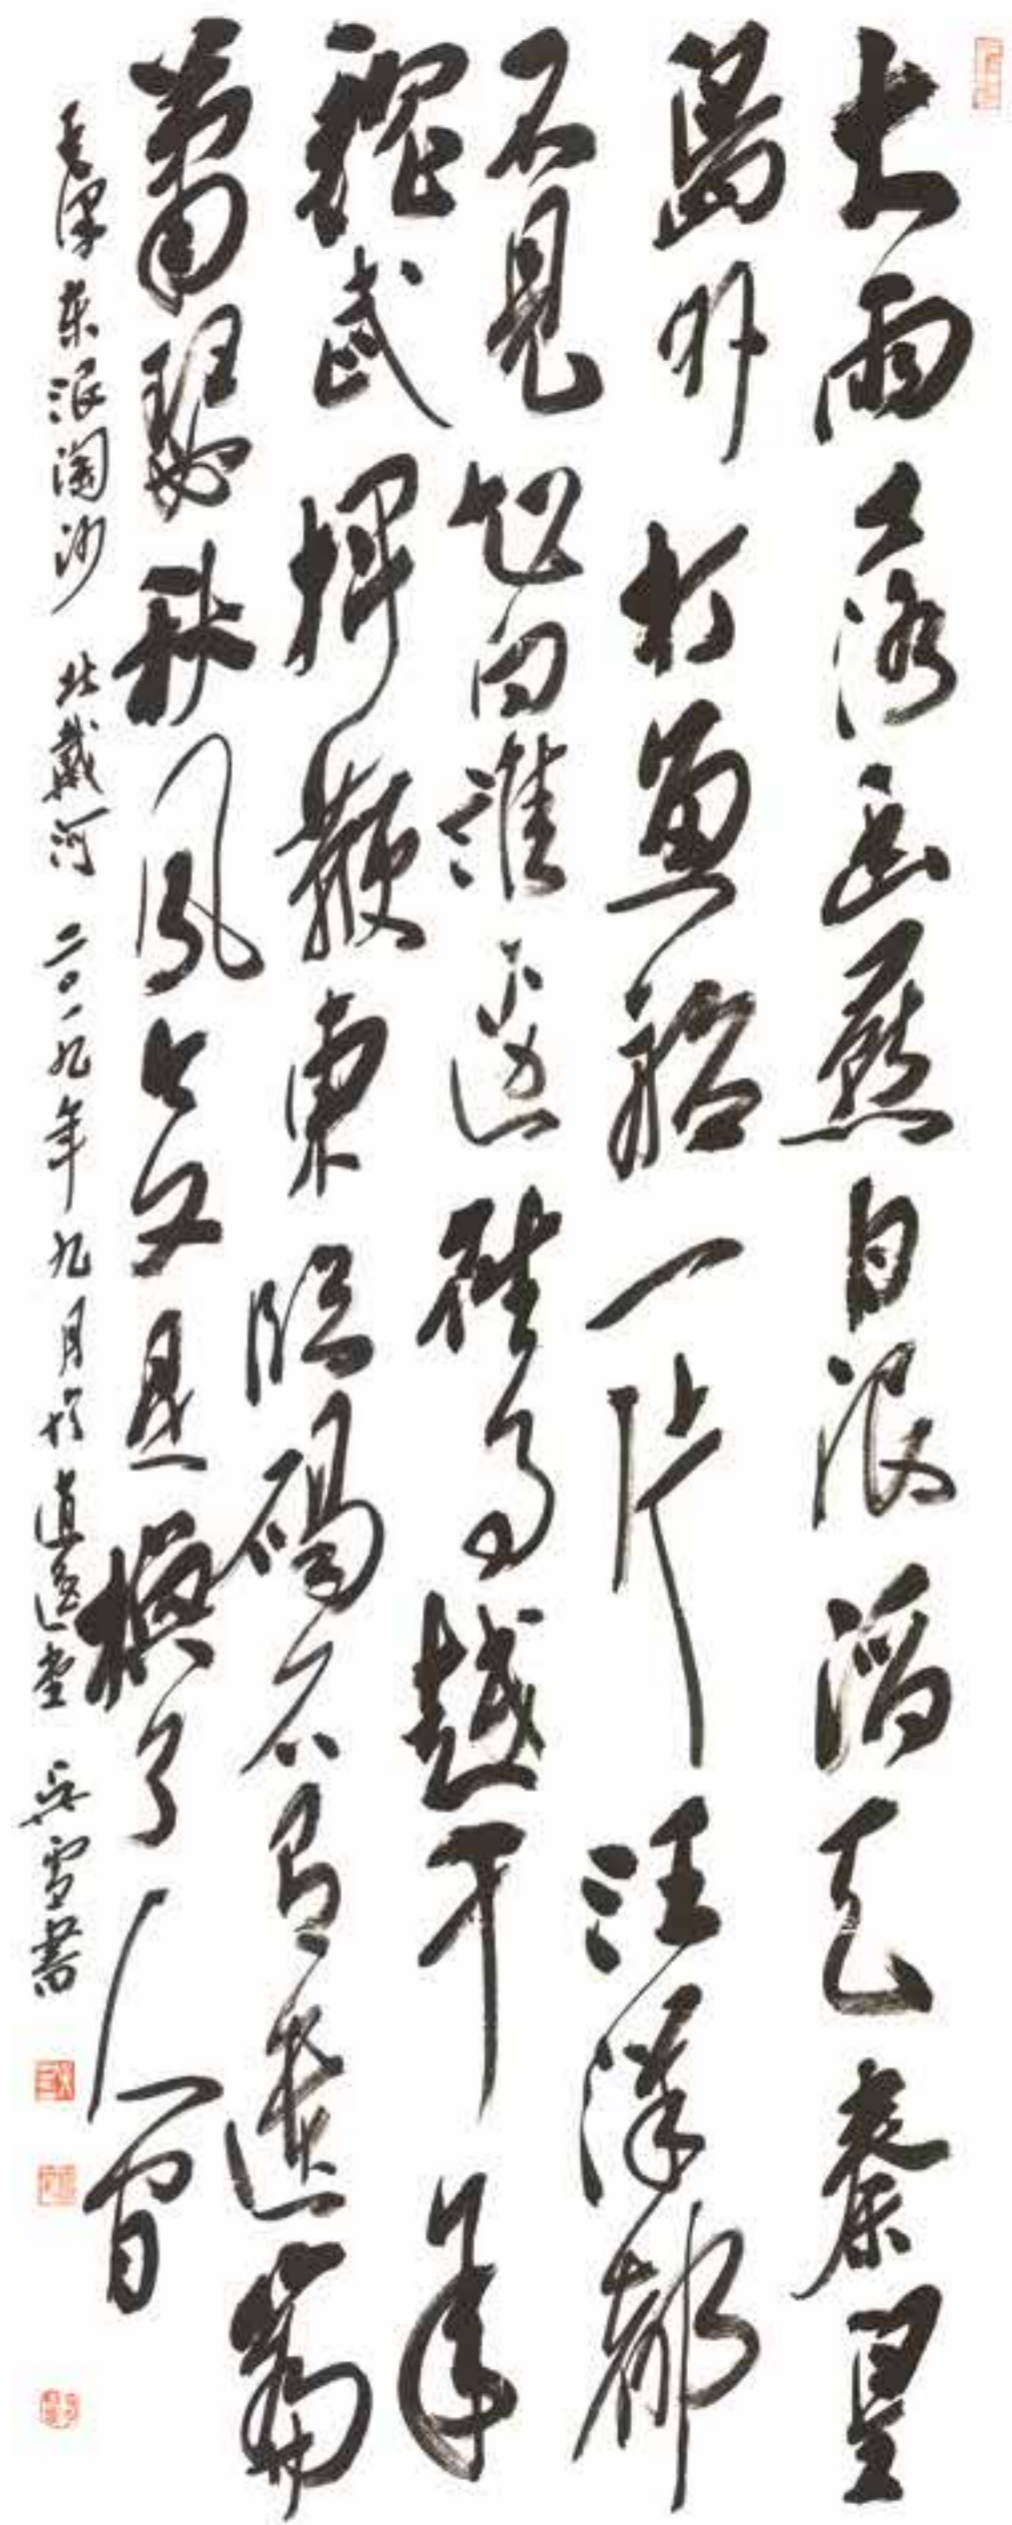 大雨落幽燕白浪滔天秦皇
島外打魚船一片汪洋都
不見知向誰邊往事越千年
魏武揮鞭東臨碣石有遺篇
蕭瑟秋風今又是換了人間
毛澤東浪淘沙 北戴河 二〇一九年九月於堂 吳雪書